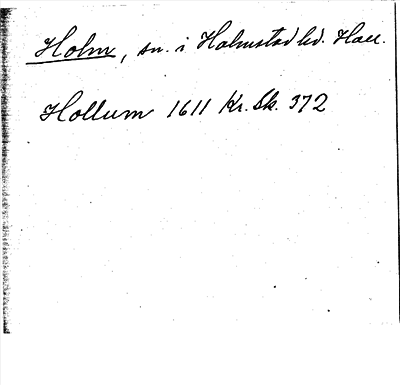 Holm, sn. i Halmstad hd. Hall.
Hollum 1611 Kr. Sk. 372